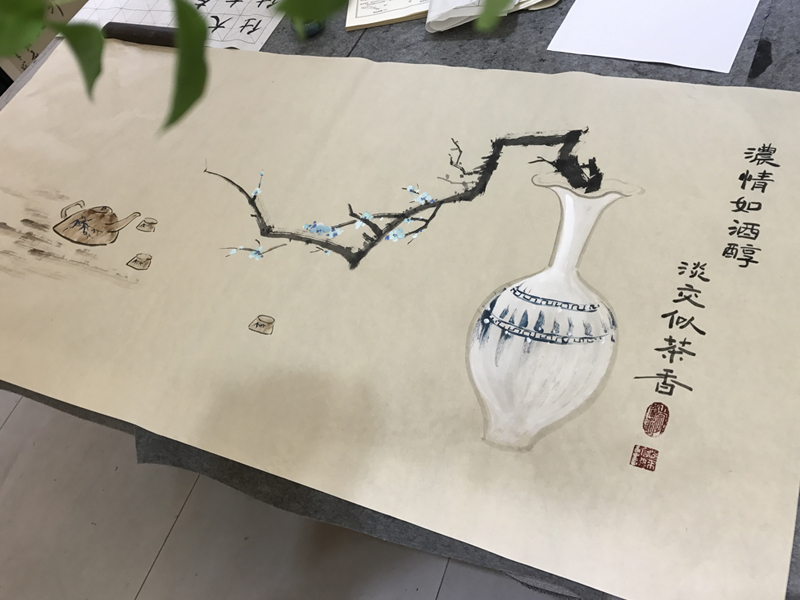 濃情如酒醇
淡交似茶香